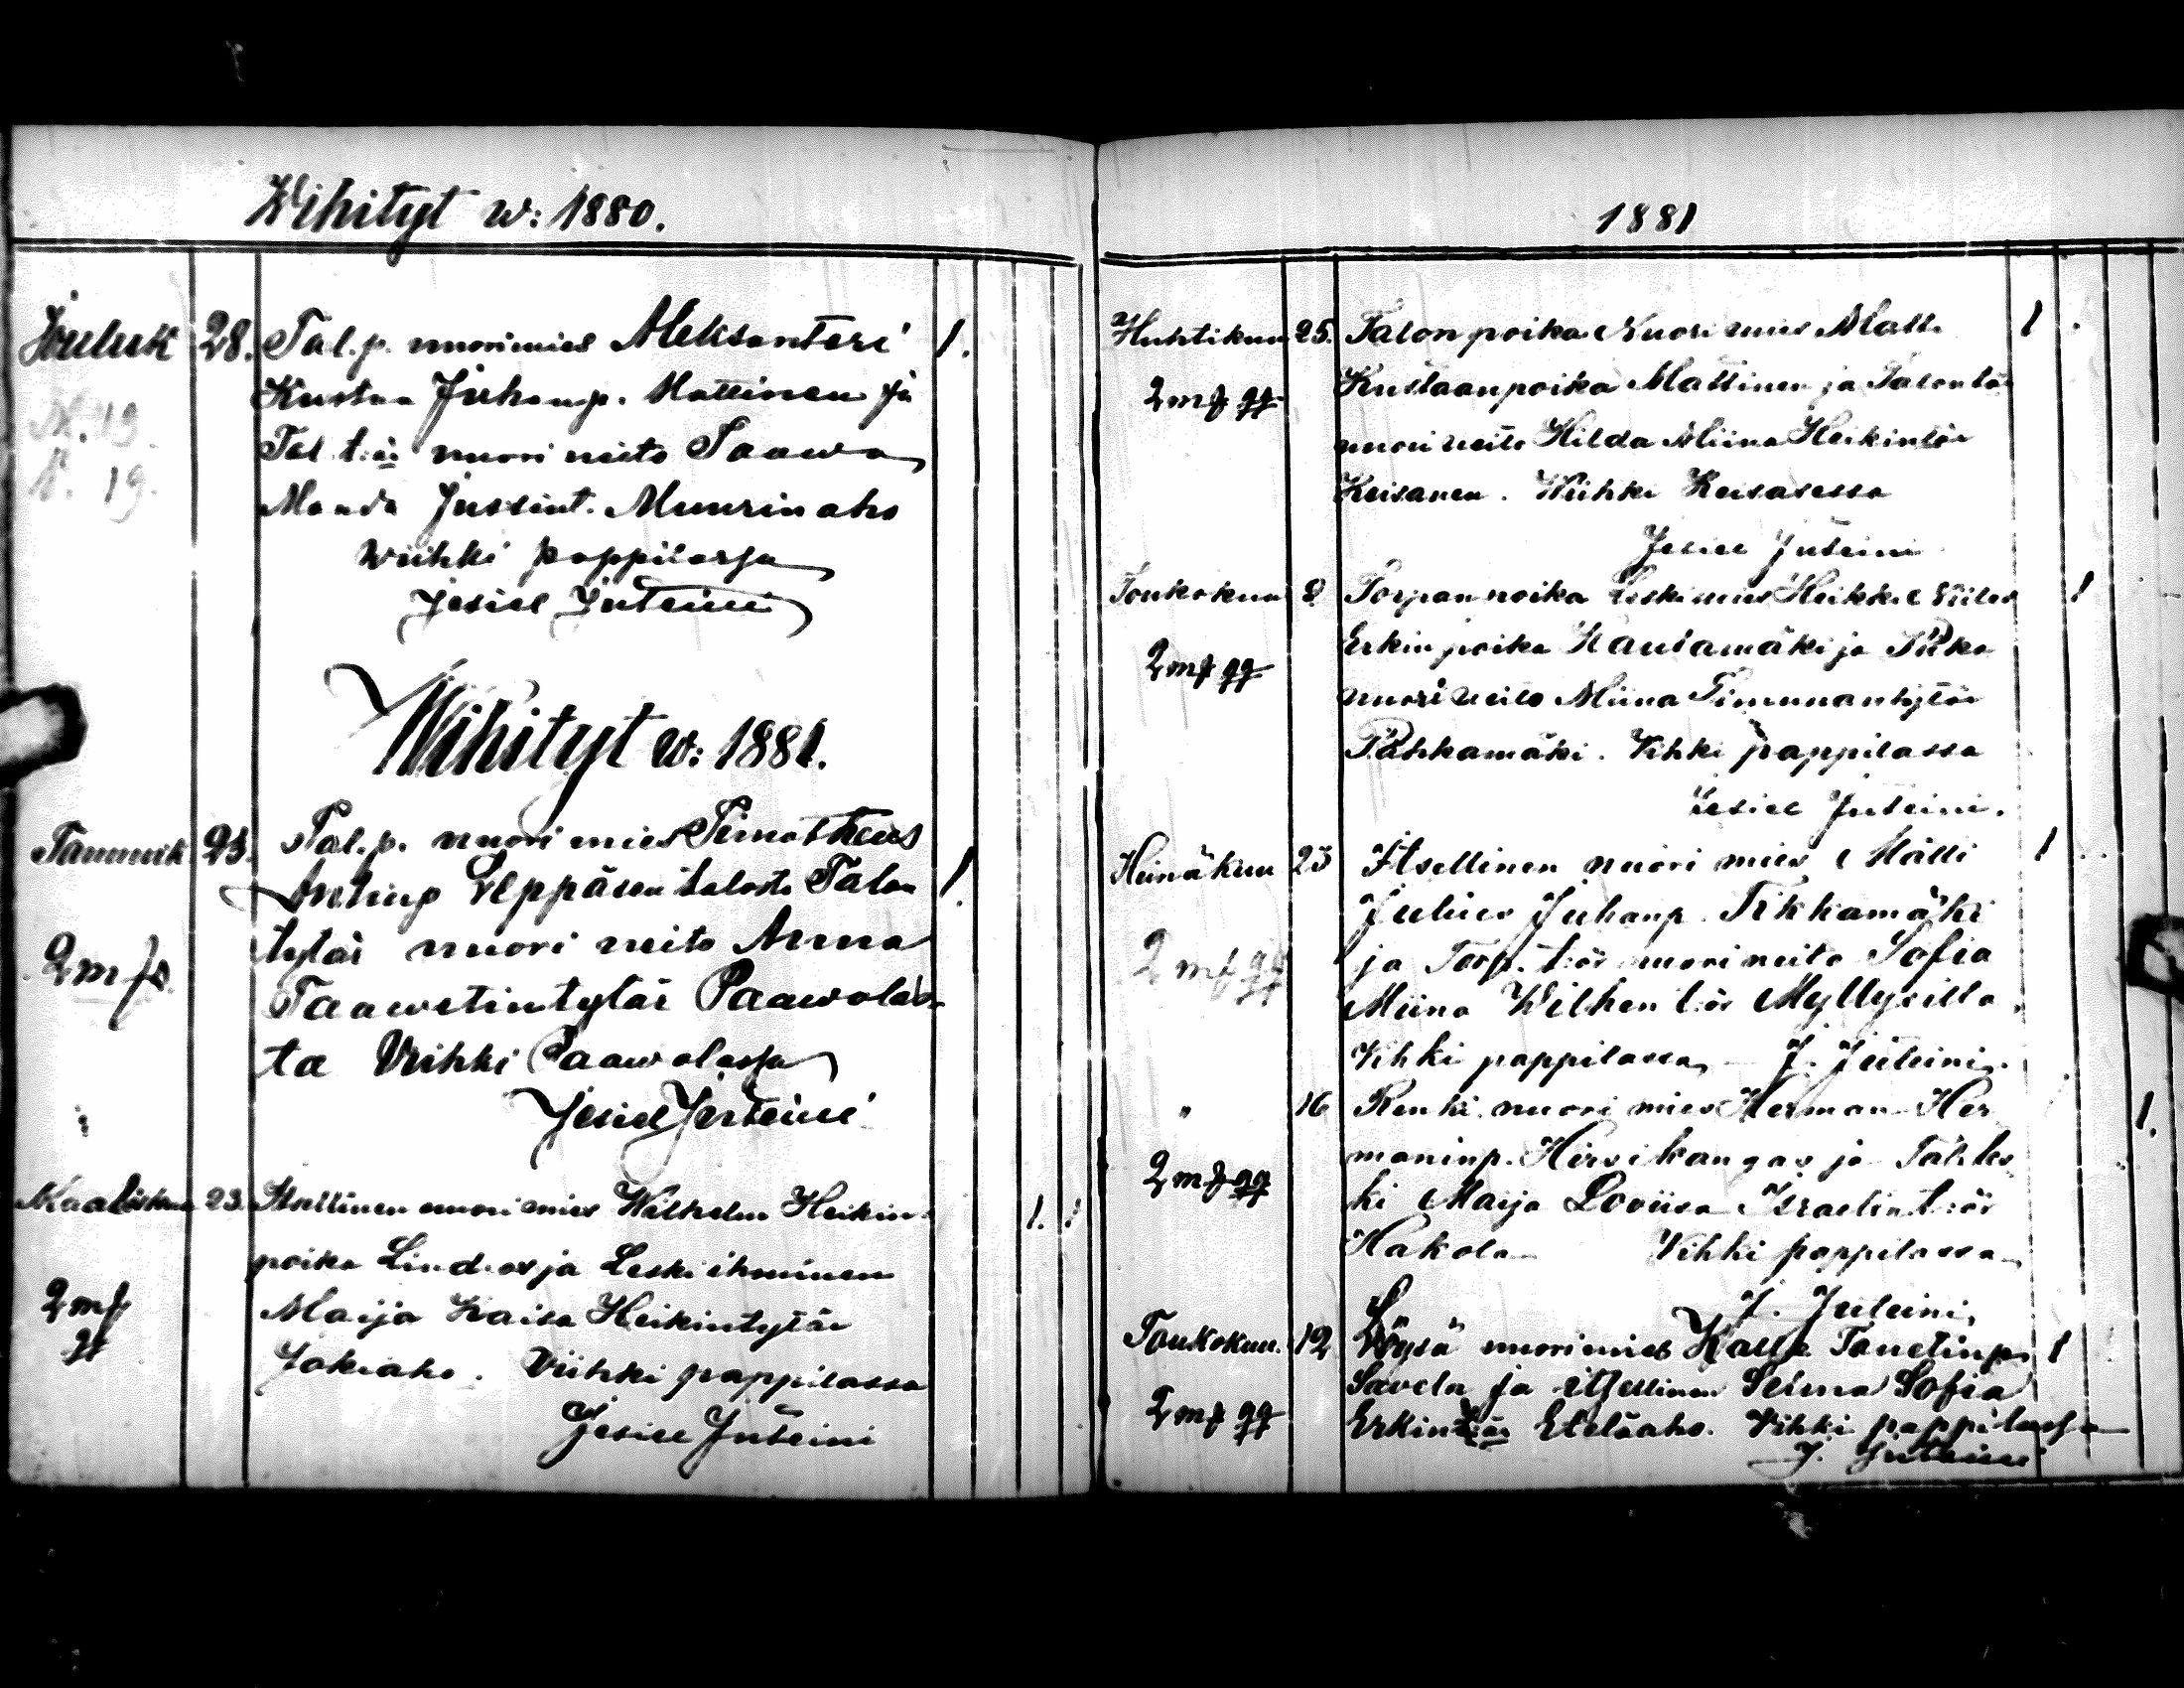 Wihityt w: 1880.
Jouluk 28. Tal.p. nuorimies Aleksanteri 1.
Kustaa Juhanp. Mattinen ja
N. 13. Tal. t:är nuori neito Saawa
N. 19. Manda Jussint. Muurinaho
Wiihki pappilassa
Jesiel Juteini
Wihityt w: 1881.
Tammik 23. Tal.p. nuori mies Timotheus
Antinp Seppäsen talosta Talon 1.
tytär nuori neito Anna
2 m f
Taawetintytär Paawolas-
ta Viihki Paawolassa
Jesiel Juteini
Maaliskuu 23. Itsellinen nuori mies Wilhelm Heikin- 1.
poika Lindroos ja Leski ihminen
2 mf Maija Kaisa Heikintytär
Jokiaho. Viihki pappilassa
Jesiel Juteini
1881
Huhtikuu 25. Talon poika Nuori mies Matti 1
2 m f Kustaanpoika Mattinen ja Talon tär
nuori neito Hilda Miina Heikintär
Keisanen. Wiihki Keisasessa
Jesiel Juteini
Toukokuu 8 Torpan poika Leski mies Heikki 1
Erkin poika Hautamäki ja Piika
2 mf nuori neito Miina Timunantytär
Pähkamäki. Vihki pappilassa
Jesiel Juteini.
Heinäkuu 23 Itsellinen nuori mies Matti 1
Julius Juhanp. Tikkamäki
2 mf ja Torp. t:är nuori neito Sofia
Miina Wilhen t:är Myllysilla.
Vihki pappilassa J. Juteini.
" 16 Renki nuori mies Herman Her 1.
maninp. Hirsikangas ja
2 mf ki Maija Loviisa Israelint:är
Hakola Vihki pappilassa
J. Juteini,
Toukokuu. 12 Löysä nuori mies Kalle Tanelinp. 1
Savela ja itsellinen Selma Sofia
2 mf Erkint:är Eteläaho. Vihki pappilassa
J. Juteini